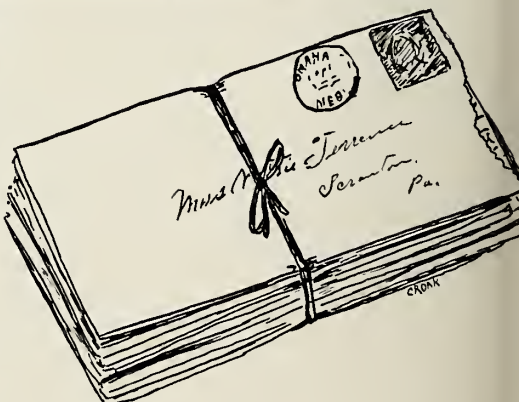 OMAHA
NEB
Miss Terrence
Scranton,
Pa.
CROAK